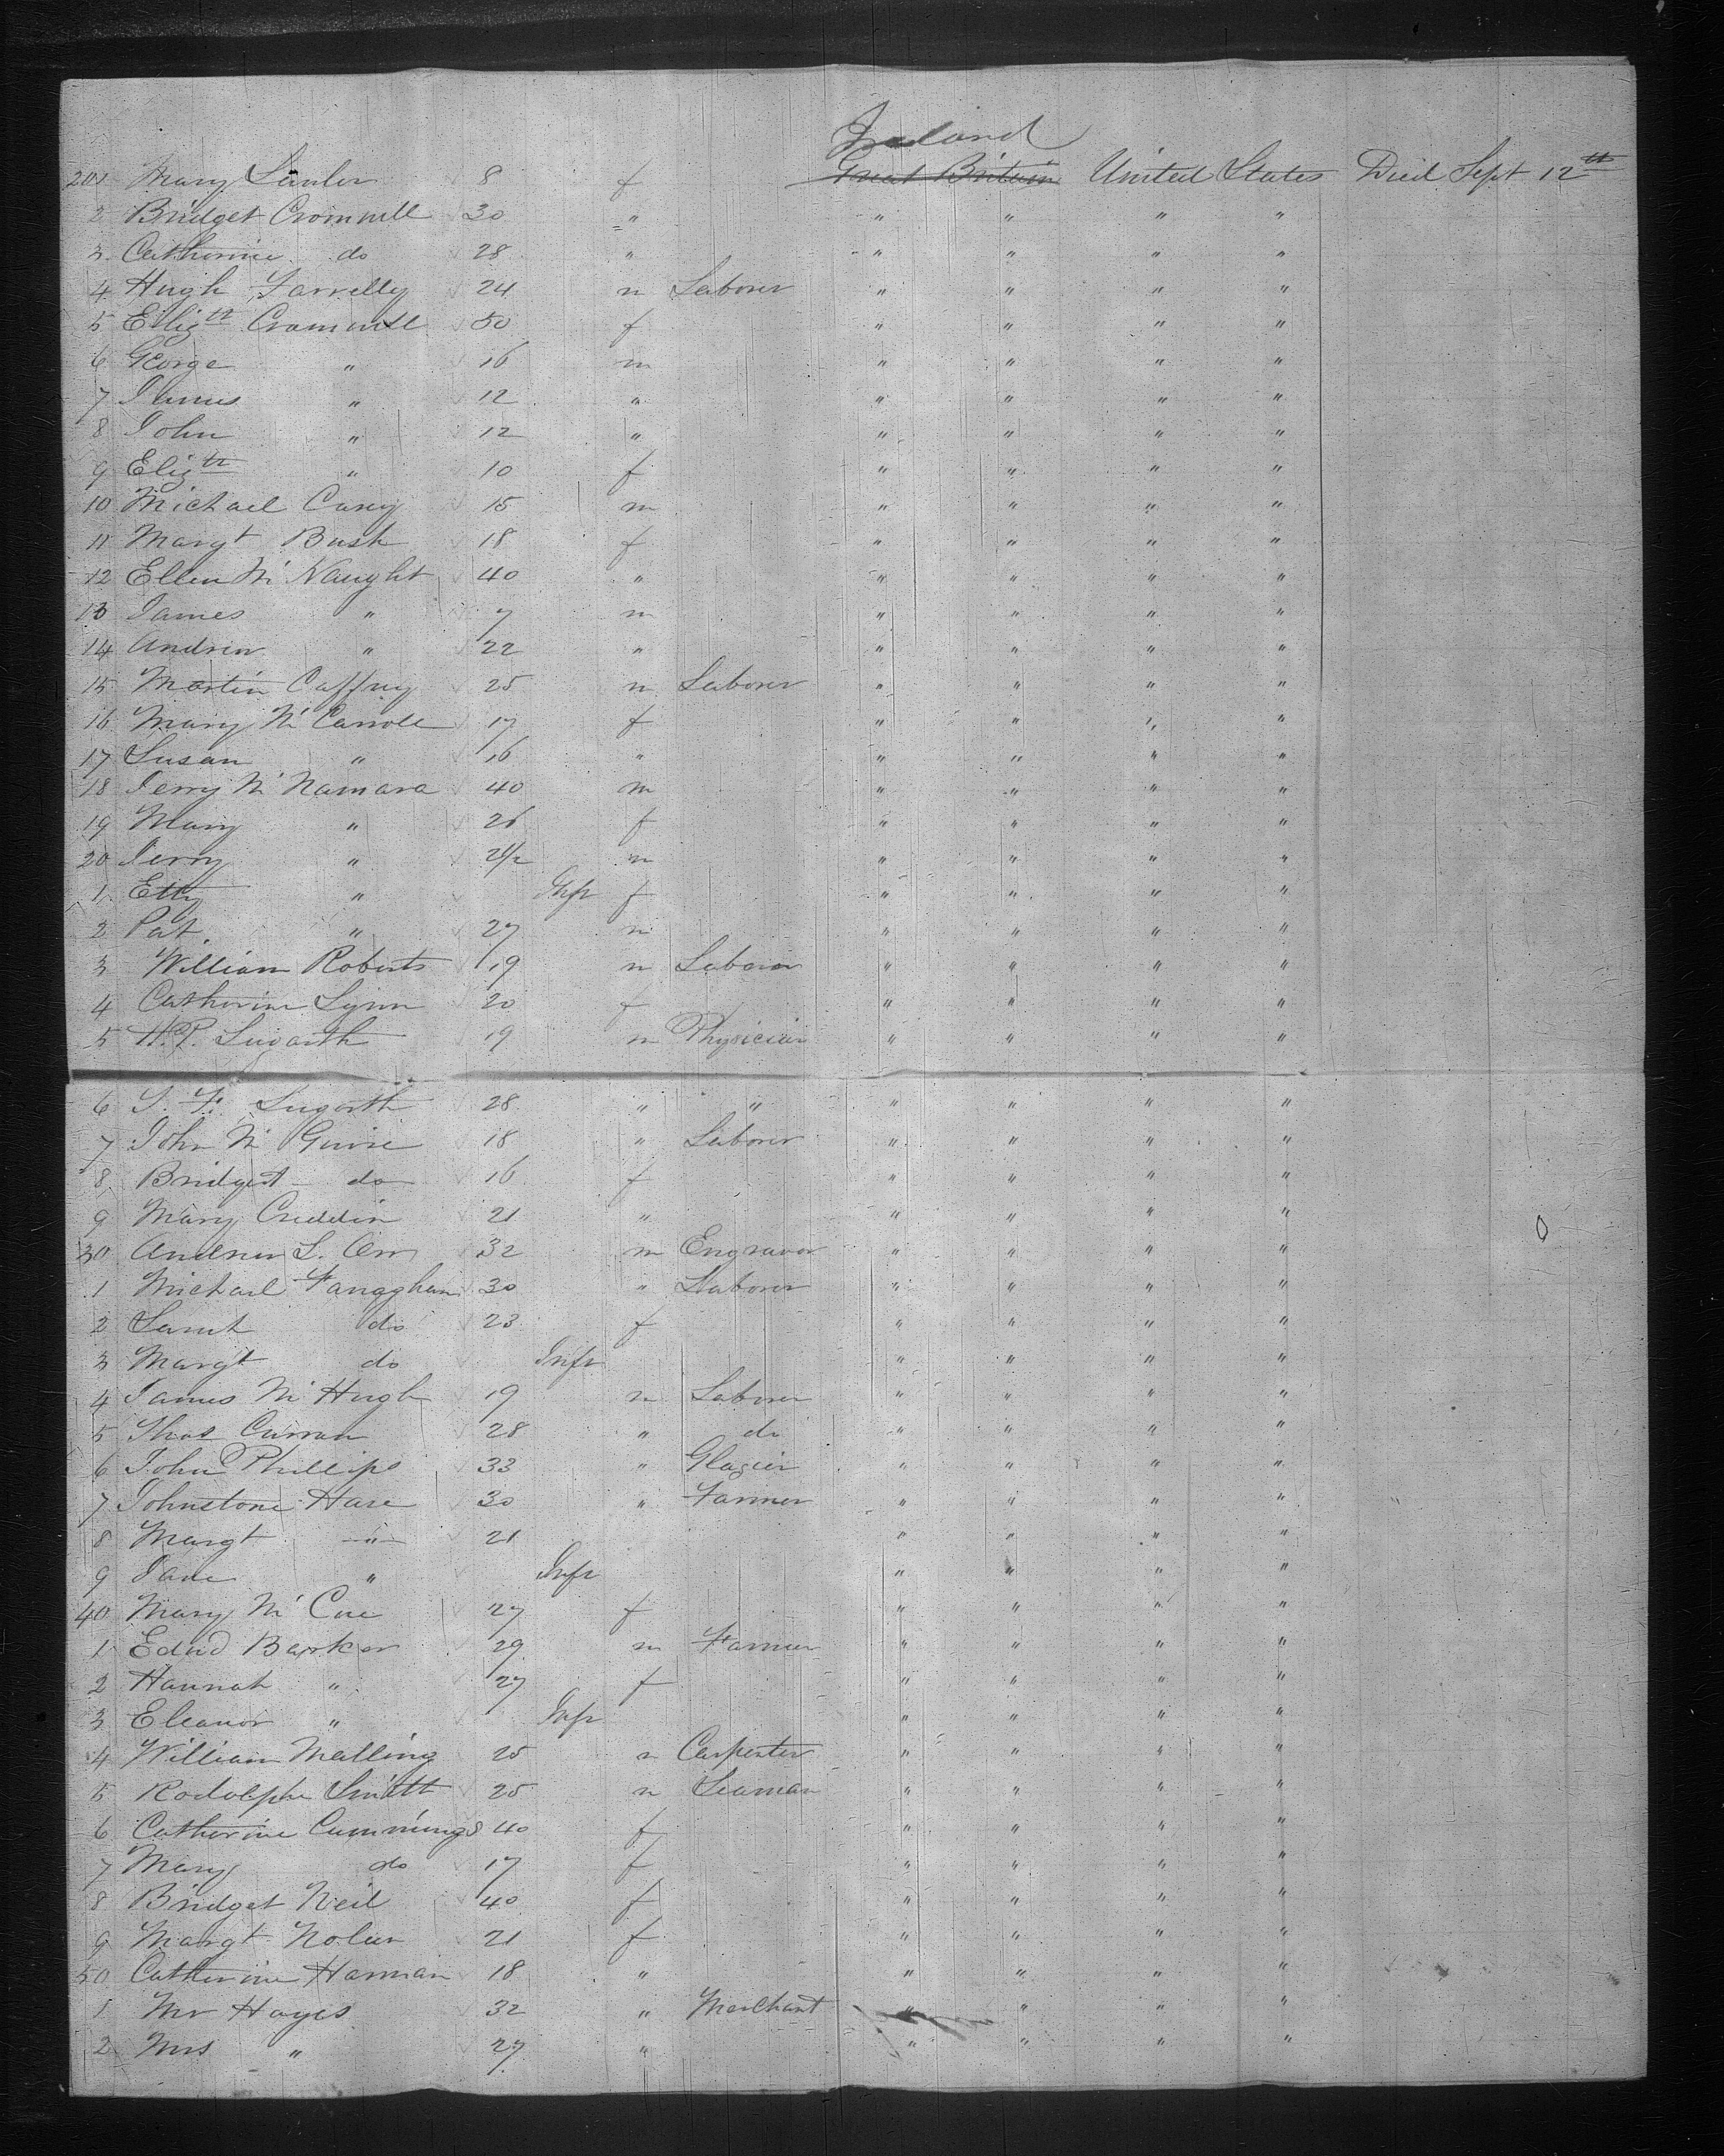 Ireland
201 Mary Lawler 8 f Great Britain United States Died Sept 12th
2 Bridget Cromwell 30 " " " " "
3 Catherine do 28 " " " " "
4 Hugh Farrelly 24 m Laborer " " " "
5 Elizth Cromwell 50 f " " " "
6 George " 16 m " " " "
7 James " 12 " " " " "
8 John " 12 " " " " "
9 Elizth " 10 f " " " "
10 Michael Casey 15 m " " " "
11 Margt Bush 18 f " " " "
12 Ellen Mc Naught 40 " " " " "
13 James " 7 m " " " "
14 Andrew " 22 " " " " "
15 Martin Caffrey 25 m Laborer " " " "
16 Mary Mc Carroll 17 f " " " "
17 Susan " 16 " " " " "
18 Jerry Mc Namara 40 m " " " "
19 Mary " 26 f " " " "
20 Jerry " m " " " "
1 Etty " Inft f " " " "
2 Pat " 27 m " " " "
3 William Roberts 19 m Laborer " " " "
4 Catherine Lynn 20 f " " " "
5 H.P. 19 m Physician " " " "
6 28 " " " " " "
7 John Mc Guire 18 " Laborer " " " "
8 Bridget do 16 f " " " "
9 Mary Creddin 21 " " " " "
30 Andrew L. Orr 32 m Engraver " " " "
1 Michael 30 " Laborer " " " "
2 Sarah do 23 f " " " "
3 Margt do Inft " " " "
4 James Mc Hugh 19 m Laborer " " " "
5 Thos Curran 28 " do " " " "
6 John Phillips 33 " Glazier " " " "
7 Johnstone Hare 30 " Farmer " " " "
8 Margt " 21 " " " "
9 Jane " Inft " " " "
40 Mary Mc Cue 27 f " " " "
1 Edwd Barker 29 m Farmer " " " "
2 Hannah " 27 f " " " "
3 Eleanor " Inft " " " "
4 William Malling 25 m Carpenter " " " "
5 Rodolphe Smith 25 m Seaman " " " "
6 Catherine Cummings 40 f " " " "
7 Mary do 17 f " " " "
8 Bridget Neil 40 f " " " "
9 Margt Nolan 21 f " " " "
50 Catherine Harman 18 " " " " "
1 Mr Hayes 32 " Merchant " " " "
2 Mrs " 27 " " " " "